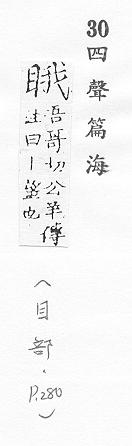 30四聲篇海
睋吾哥切公羊傳
注曰丨望也
(目部·P.280)